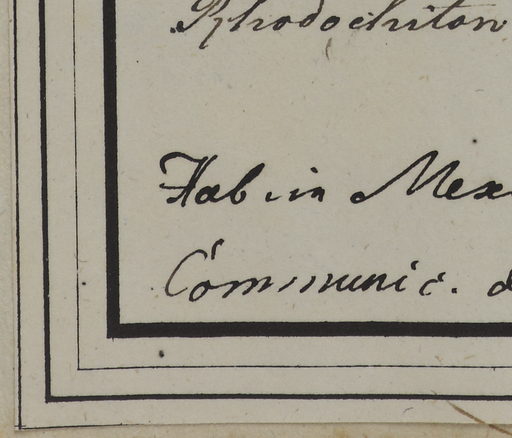 Rhodochiton
Hab in Mex
Communic. d